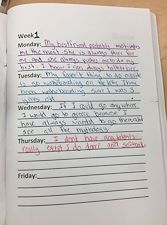 Week 1
Monday: My bestfriend probably motivates
me the most. She is always there for
me and she always pushes me to do my
best. I know I can always talk to her.
Tuesday: My favorite thing to do outside
is go wakeboarding on the lake. I have
been wakeboarding since I was 3
years old.
Wednesday: If I could go anywhere
I would go to greece because I
have always wanted to go there and
see all the mythology.
Thursday: I don't have any talents
really except I do
Friday: